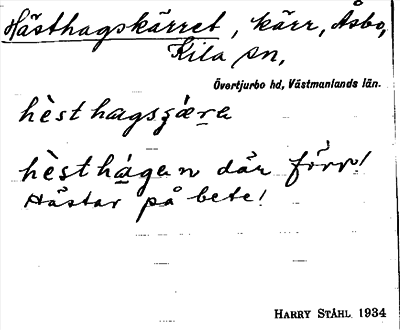 Hästhagskärret, kärr, Åsbo,
Kila sn,
Övertjurbo hd, Västmanlands län.
hèsthagsʒæ̀ra
hèsthágan där förr!
Hästar på bete!
HARRY STÅHL 1934